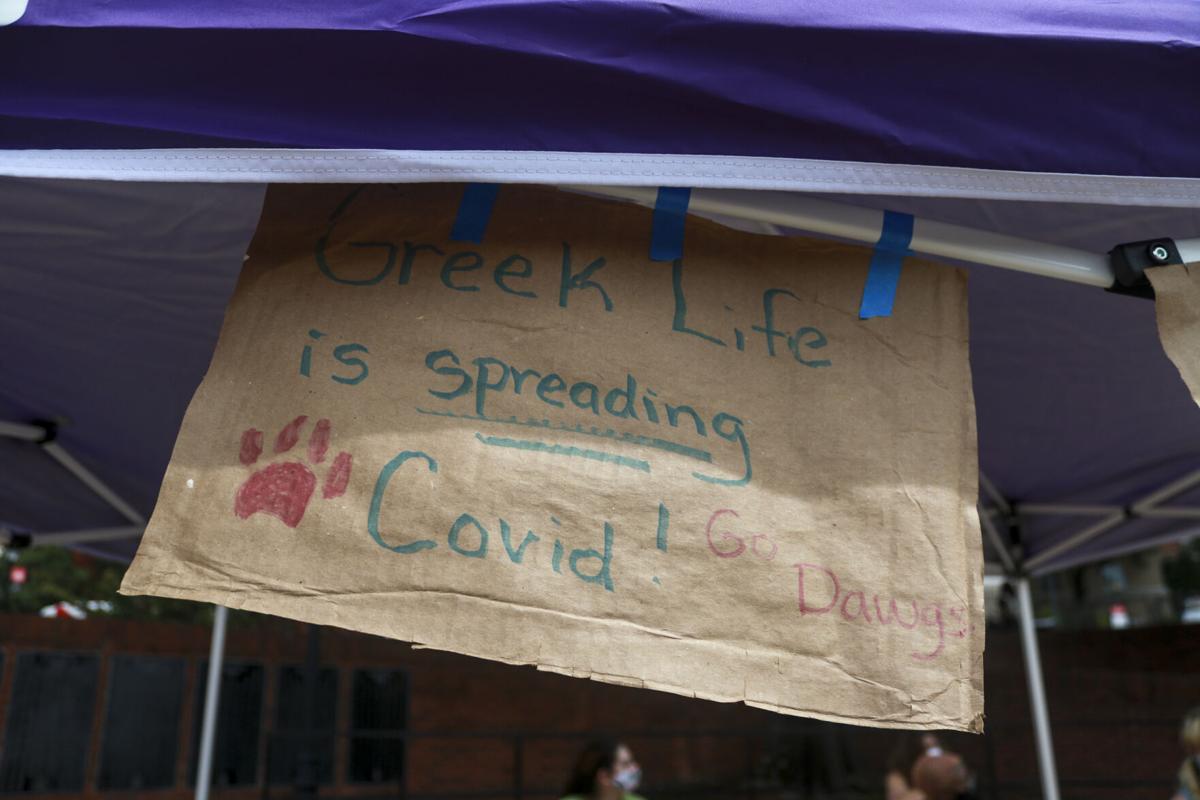 Greek Life
is spreading
Covid! Go
Dawgs